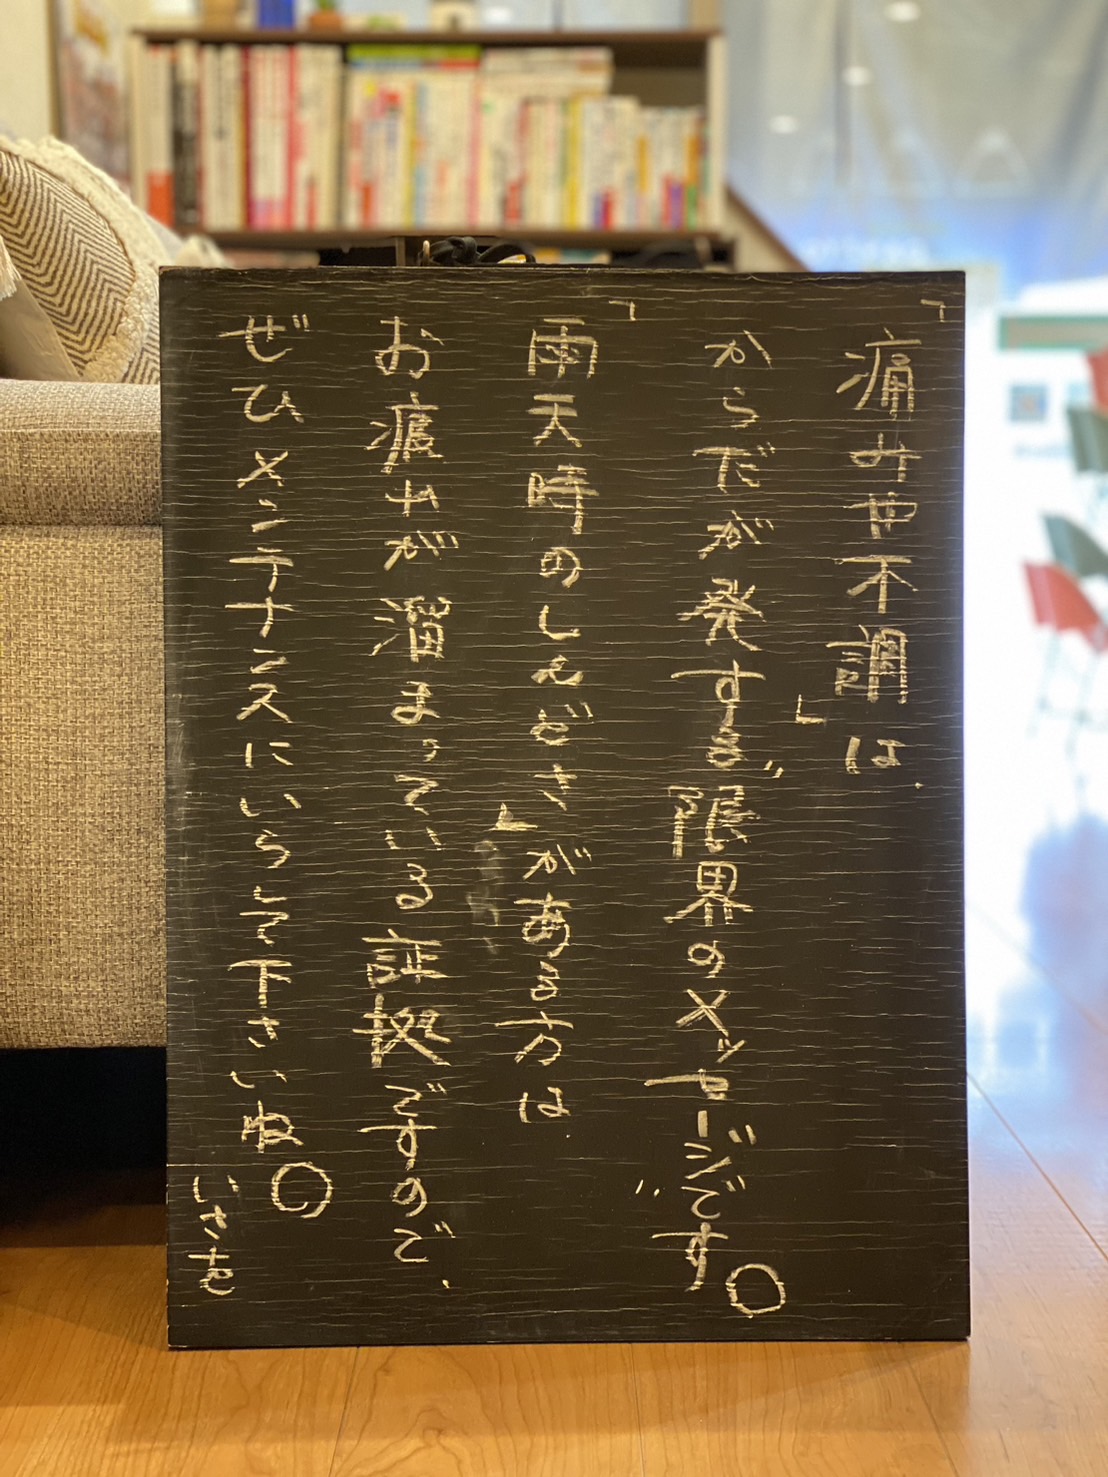 「痛みや不調」は、
からだが発する〝限界のメッセージ〟です。
「雨天時のしんどさ」がある方は、
お疲れが溜まっている証拠ですので、
ぜひメンテナンスにいらして下さいね。
いさを